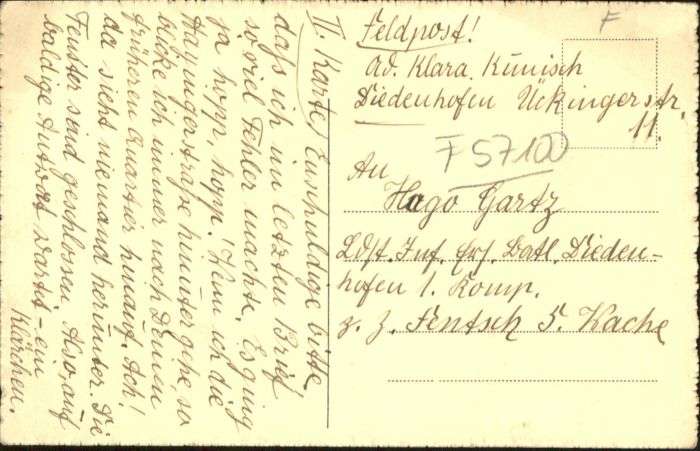 Feldpost!
F
Ad. Klara Künisch
Diedenhofen Ückingerstr.
11.
F 57100
An
Hugo Gartz
Ldst. Inf. Ers. Batl. Dieden-
hofen 1. Komp.
z. Z. Fentsch 5. Wache
II. Karte) Enschuldige bitte
daß ich im letzten Brief
so viel Fehler machte. Es ging
ja hopp, hopp! Wenn ich die
Hayingerstraße hinunter gehe, so
blicke ich immer nach Deinem
früheren Quartier hinauf. Ach!
da sieht niemand herunter. Die
Fenster sind geschlossen. Also, auf
baldige Antwort wartet - ein
Klärchen.